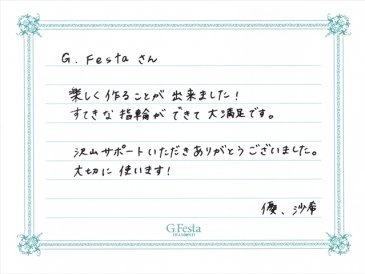 G. Festa さん
楽しく作ることが 出来ました！
すてきな 指輪が できて 大満足です。
沢山サポートいただきありがとうございました。
大切に 使います！
優、沙希
G.Festa